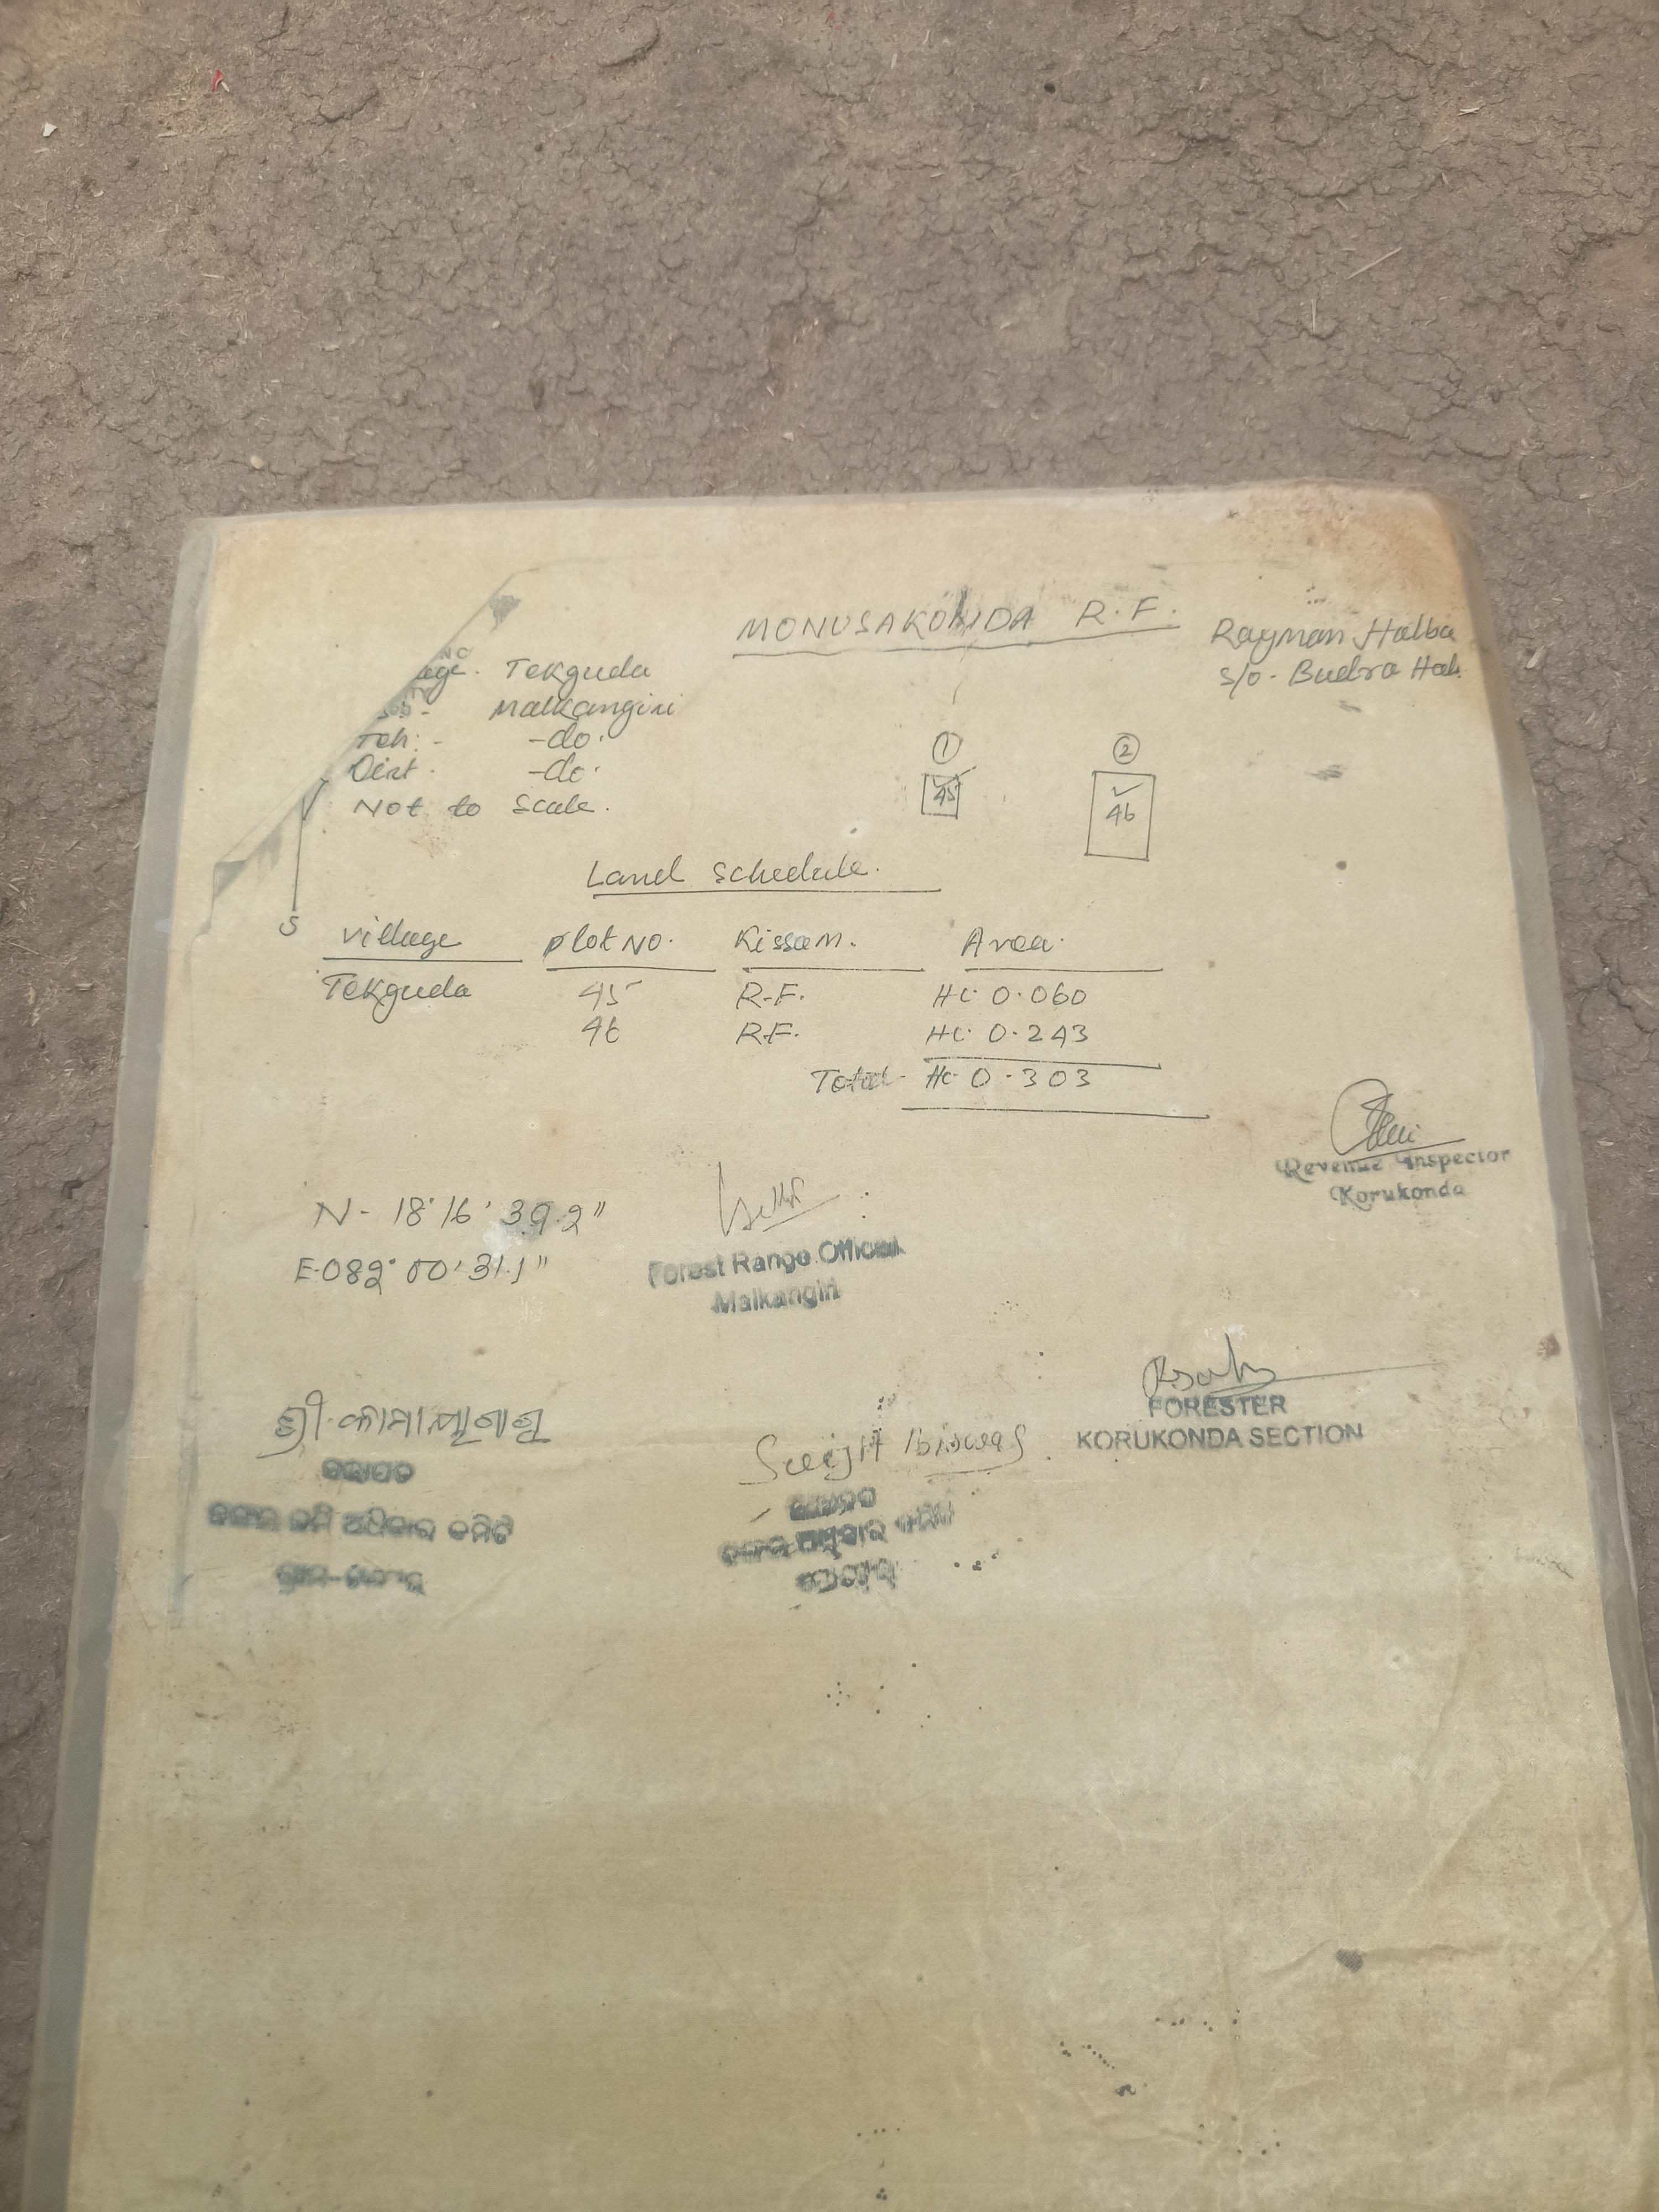 MONUSAKONDA R.F.
Rayman Halba
S/o - Budra Hal
age. Tekguda
Malkangiri
Teh: - -do.
Dist. -do.
Not to Scale.
① ②
45 46
S
Land Schedule.
Village Plot No. Kissam. Area.
Tekguda 45 R.F. Hc. 0.060
46 R.F. Hc. 0.243
Total - Hc. 0.303
Revenue Inspector
Korukonda
N - 18° 16' 39.2"
E-082° 00' 31.1"
Forest Range Officer
Malkangiri
FORESTER
KORUKONDA SECTION
ଶ୍ରୀ
Surjit Biswas
ସଭାପତି
ଜଙ୍ଗଲ ଜମି ଅଧିକାର କମିଟି